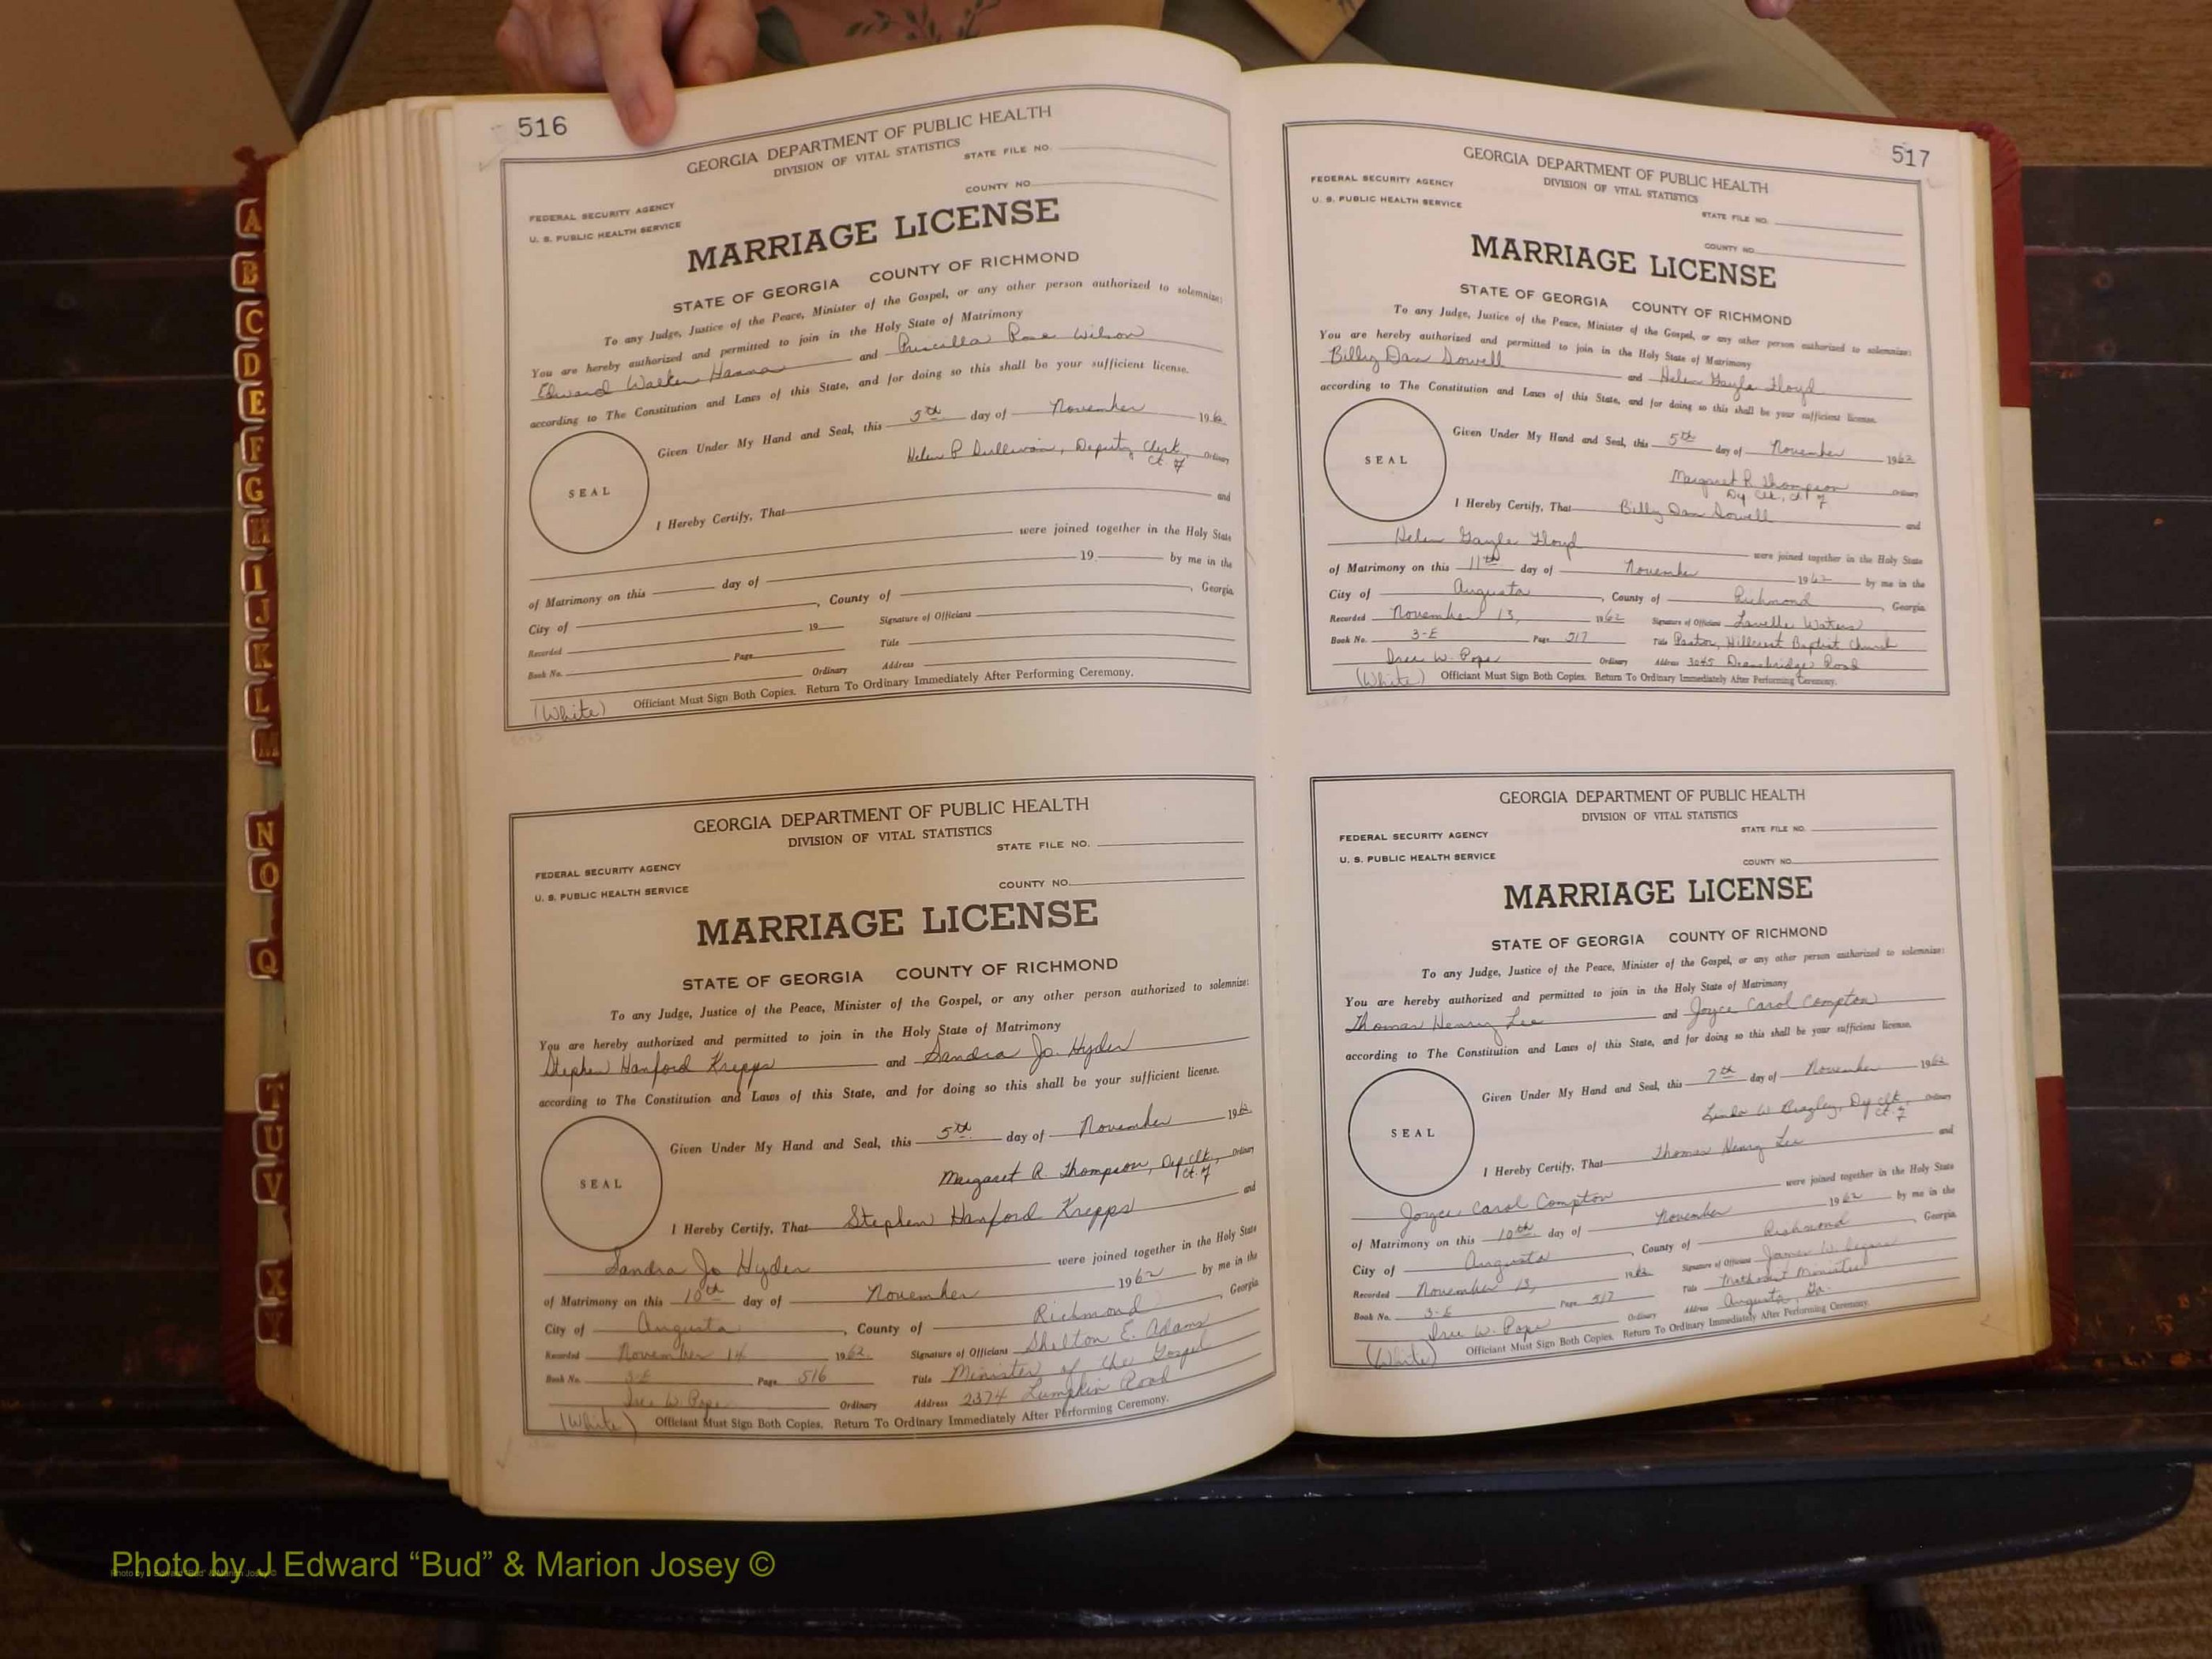 A
B
C
D
E
F
G
H
I
J
K
L
M
N
O
Q
T
U
V
X
Y
516
GEORGIA DEPARTMENT OF PUBLIC HEALTH
DIVISION OF VITAL STATISTICS
STATE FILE NO.
COUNTY NO.
FEDERAL SECURITY AGENCY
U. S. PUBLIC HEALTH SERVICE
MARRIAGE LICENSE
STATE OF GEORGIA COUNTY OF RICHMOND
To any Judge, Justice of the Peace, Minister of the Gospel, or any other person authorized to solemnize:
You are hereby authorized and permitted to join in the Holy State of Matrimony
Edward Walker Hanna and Priscilla Rose Wilson
according to The Constitution and Laws of this State, and for doing so this shall be your sufficient license.
Given Under My Hand and Seal, this 5th day of November 1962
Helen P Sullivan, Deputy Clerk, Ordinary
Ct. of
SEAL
I Hereby Certify, That and
were joined together in the Holy State
of Matrimony on this day of 19 by me in the
City of , County of , Georgia
Recorded 19 Signature of Officiant
Book No. Page Title
Ordinary Address
(White) Officiant Must Sign Both Copies. Return To Ordinary Immediately After Performing Ceremony.
GEORGIA DEPARTMENT OF PUBLIC HEALTH
DIVISION OF VITAL STATISTICS
STATE FILE NO.
FEDERAL SECURITY AGENCY
COUNTY NO.
U. S. PUBLIC HEALTH SERVICE
MARRIAGE LICENSE
STATE OF GEORGIA COUNTY OF RICHMOND
To any Judge, Justice of the Peace, Minister of the Gospel, or any other person authorized to solemnize:
You are hereby authorized and permitted to join in the Holy State of Matrimony
Stephen Hanford Krepps and Sandra Jo Hyder
according to The Constitution and Laws of this State, and for doing so this shall be your sufficient license.
Given Under My Hand and Seal, this 5th day of November 1962
Margaret R. Thompson, Dep Clk, Ordinary
Ct. of
SEAL
I Hereby Certify, That Stephen Hanford Krepps and
Sandra Jo Hyder were joined together in the Holy State
of Matrimony on this 10th day of November 1962 by me in the
City of Augusta, County of Richmond, Georgia
Recorded November 14 1962. Signature of Officiant Shelton E. Adams
Book No. 3-E Page 516 Title Minister of the Gospel
Isee W. Pope Ordinary Address 2374 Lumpkin Road
(White) Officiant Must Sign Both Copies. Return To Ordinary Immediately After Performing Ceremony.
517
GEORGIA DEPARTMENT OF PUBLIC HEALTH
DIVISION OF VITAL STATISTICS
FEDERAL SECURITY AGENCY
U. S. PUBLIC HEALTH SERVICE
STATE FILE NO.
COUNTY NO.
MARRIAGE LICENSE
STATE OF GEORGIA COUNTY OF RICHMOND
To any Judge, Justice of the Peace, Minister of the Gospel, or any other person authorized to solemnize:
You are hereby authorized and permitted to join in the Holy State of Matrimony
Billy Dan Sowell and Helen Gayle Floyd
according to The Constitution and Laws of this State, and for doing so this shall be your sufficient license.
Given Under My Hand and Seal, this 5th day of November 1962
Margaret R Thompson Ordinary
Dy Clk, Ct of
SEAL
I Hereby Certify, That Billy Dan Sowell and
Helen Gayle Floyd were joined together in the Holy State
of Matrimony on this 11th day of November 1962 by me in the
City of Augusta, County of Richmond, Georgia
Recorded November 13, 1962 Signature of Officiant Lavelle Waters
Book No. 3-E Page 517 Title Pastor, Hillcrest Baptist Church
Isee W. Pope Ordinary Address 3045 Deansbridge Road
(White) Officiant Must Sign Both Copies. Return To Ordinary Immediately After Performing Ceremony.
GEORGIA DEPARTMENT OF PUBLIC HEALTH
DIVISION OF VITAL STATISTICS
STATE FILE NO.
FEDERAL SECURITY AGENCY
U. S. PUBLIC HEALTH SERVICE
COUNTY NO.
MARRIAGE LICENSE
STATE OF GEORGIA COUNTY OF RICHMOND
To any Judge, Justice of the Peace, Minister of the Gospel, or any other person authorized to solemnize:
You are hereby authorized and permitted to join in the Holy State of Matrimony
Thomas Henry Lee and Joyce Carol Compton
according to The Constitution and Laws of this State, and for doing so this shall be your sufficient license.
Given Under My Hand and Seal, this 7th day of November 1962
Linda W Beazley, Dy Clk, Ordinary
Ct. of
SEAL
I Hereby Certify, That Thomas Henry Lee and
Joyce Carol Compton were joined together in the Holy State
of Matrimony on this 10th day of November 1962 by me in the
City of Augusta, County of Richmond, Georgia
Recorded November 13, 1962 Signature of Officiant James W.
Book No. 3-E Page 517 Title Methodist Minister
Isee W. Pope Ordinary Address Augusta, Ga.
(White) Officiant Must Sign Both Copies. Return To Ordinary Immediately After Performing Ceremony.
Photo by J Edward “Bud” & Marion Josey ©
Photo by J Edward "Bud" & Marion Josey ©